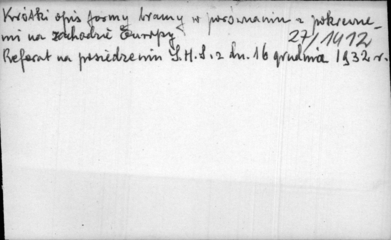 Krótki opis formy bramy w porównaniu z pokrewne-
mi na zachodzie Europy
27/1412
Referat na posiedzeniu S.H.S. z dn. 16 grudnia 1932 r.